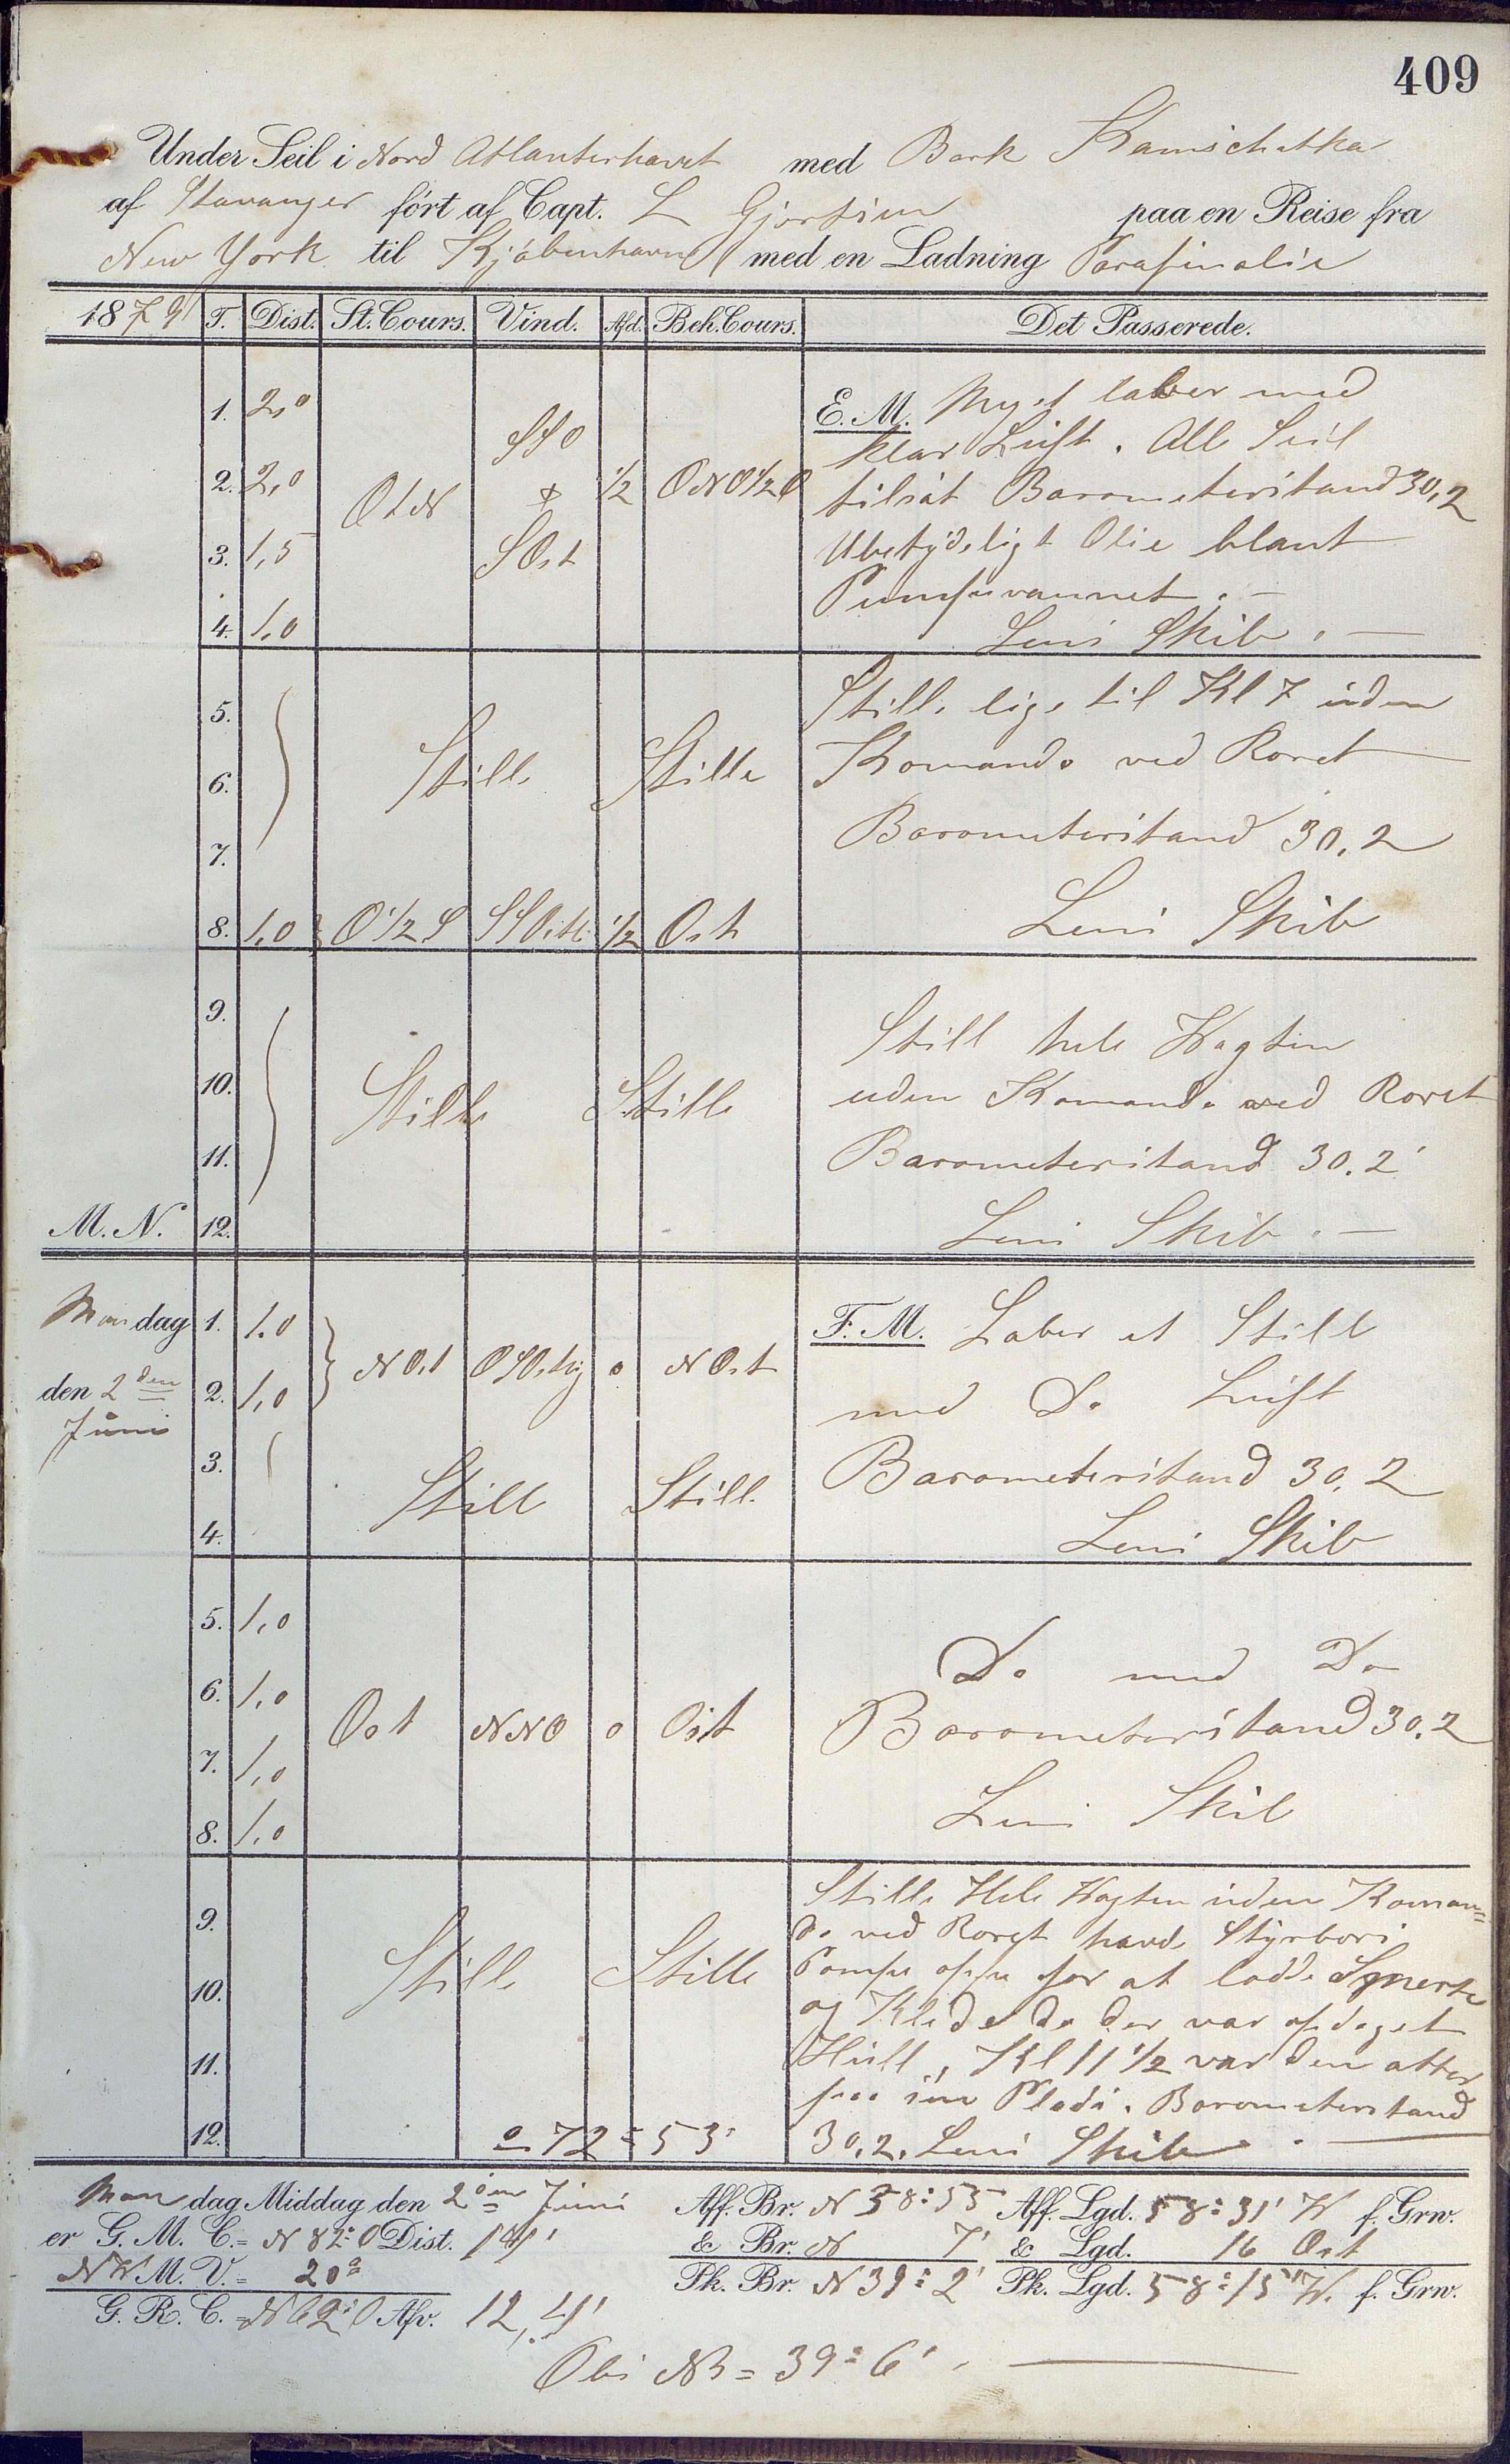 409
Under Seil i Nord Atlanterhavet med Bark Kamschatka
af Stavanger fört af Capt. L Gjertsen paa en Reise fra
New York til Kjöbenhavn med en Ladning Parafinolie
1879 T. Dist. St. Cours. Vind. Afd. Beh. Cours. Det Passerede.
1. 2,0 E. M. Myet laber med
SSO klar Luft. All Seil
2. 2,0 OtN & 1/2 ONO1/2O tilsat Barometerstand 30,2
3. 1,5 SOst Ubetydeligt Olie blant
Pumpevannet. —
4. 1,0 Lens Skib. —
5. Stille lige til Kl 7 uden
6. Stille Stille Komando ved Roret
7. Barometerstand 30,2
8. 1,0 O 1/2 S SSOstl: 1/2 Ost Lens Skib
9. Still hele Wagten
10. Stille Stille uden Komando ved Roret
11. Barometerstand 30.2
M. N. 12. Lens Skib. —
Mandag 1. 1.0 F. M. Laber et Still
NOst OSOstlig 0 NOst
den 2den 2. 1,0 med Do Luft
Juni
3. Still Still Barometerstand 30,2
4. Lens Skib
5. 1,0
6. 1,0 Do med Do
Ost NNO 0 Ost Barometerstand 30.2
7. 1,0
8. 1,0 Lens Skib
Stille Hele Wagten uden Koman=
9. do ved Roret havde Styrbors
10. Stille Stille Pompe oppe for at lodde Smerte
og Klæde da der var opdaget
11. Hull, Kl 11 1/2 var den atter
paa sin Plads. Barometerstand
12. 0= 72 = 53' 30,2. Lens Skib.
Mandag Middag den 2den Juni Aff. Br. N 38° 55 Aff. Lgd. 58° 31' W f. Grw.
er G. M. C. = N 82° O Dist. 14' & Br. N 7' & Lgd. 16 Ost
NW M. V. = 20° Pk. Br. N 39° 2' Pk. Lgd. 58° 15' W. f. Grw.
G. R. C. = N 62° O Afv. 12,4'
Obs NB = 39° 6'. —